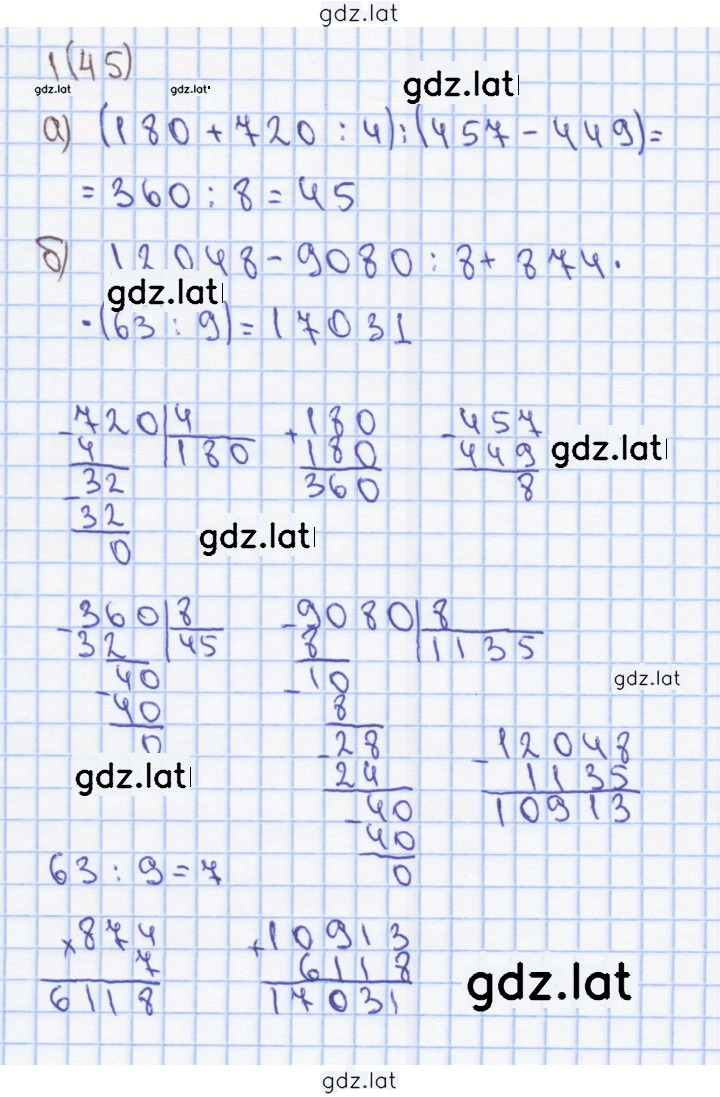 gdz.lat
1(45)
gdz.lat gdz.lat gdz.lat
а) (180 + 720 : 4) : (457 - 449) =
= 360 : 8 = 45
б) 12048 - 9080 : 8 + 874 ·
gdz.lat
· (63 : 9) = 17031
- 720 | 4
4 | 180
- 32
32
0
+ 180
180
360
- 457
449
8
gdz.lat
gdz.lat
- 360 | 8
32 | 45
- 40
40
0
- 9080 | 8
8 | 1135
- 10
8
- 28
24
- 40
40
0
gdz.lat
- 12048
1135
10913
gdz.lat
63 : 9 = 7
× 874
7
6118
+ 10913
6118
17031
gdz.lat
gdz.lat